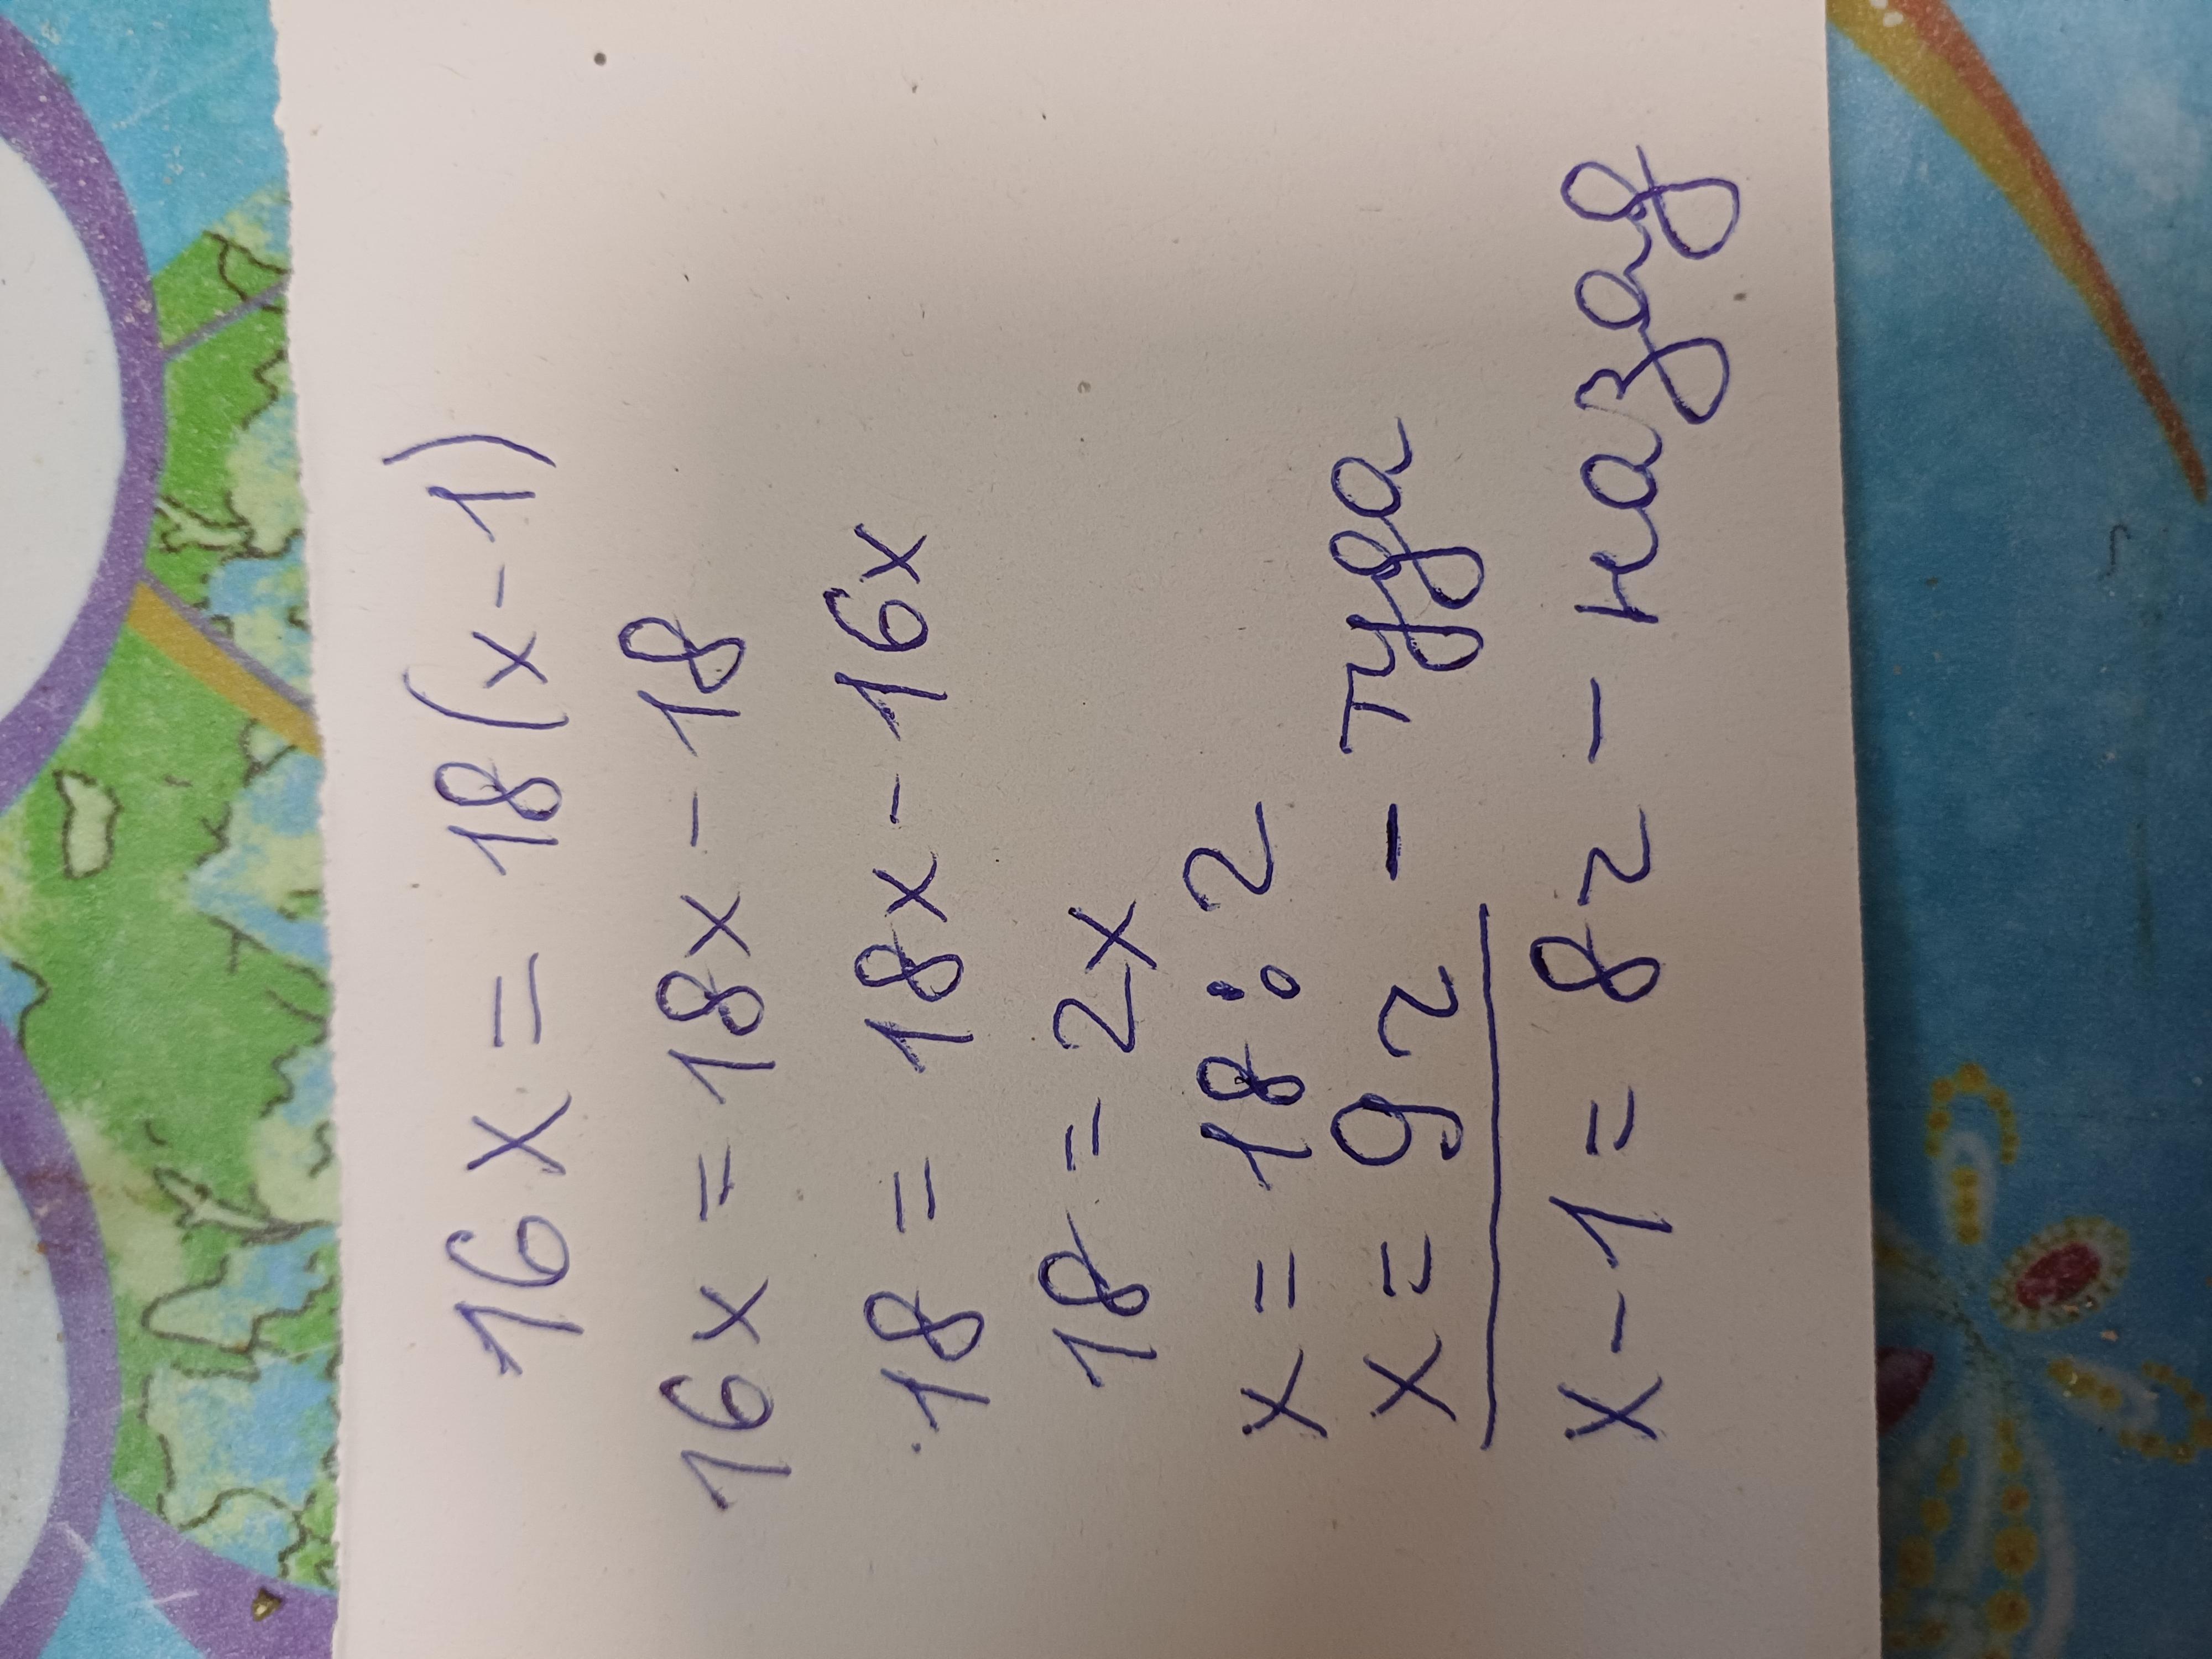 16x = 18(x-1)
16x = 18x - 18
18 = 18x - 16x
18 = 2x
x = 18 : 2
x = 9ч - туда
x - 1 = 8ч - назад